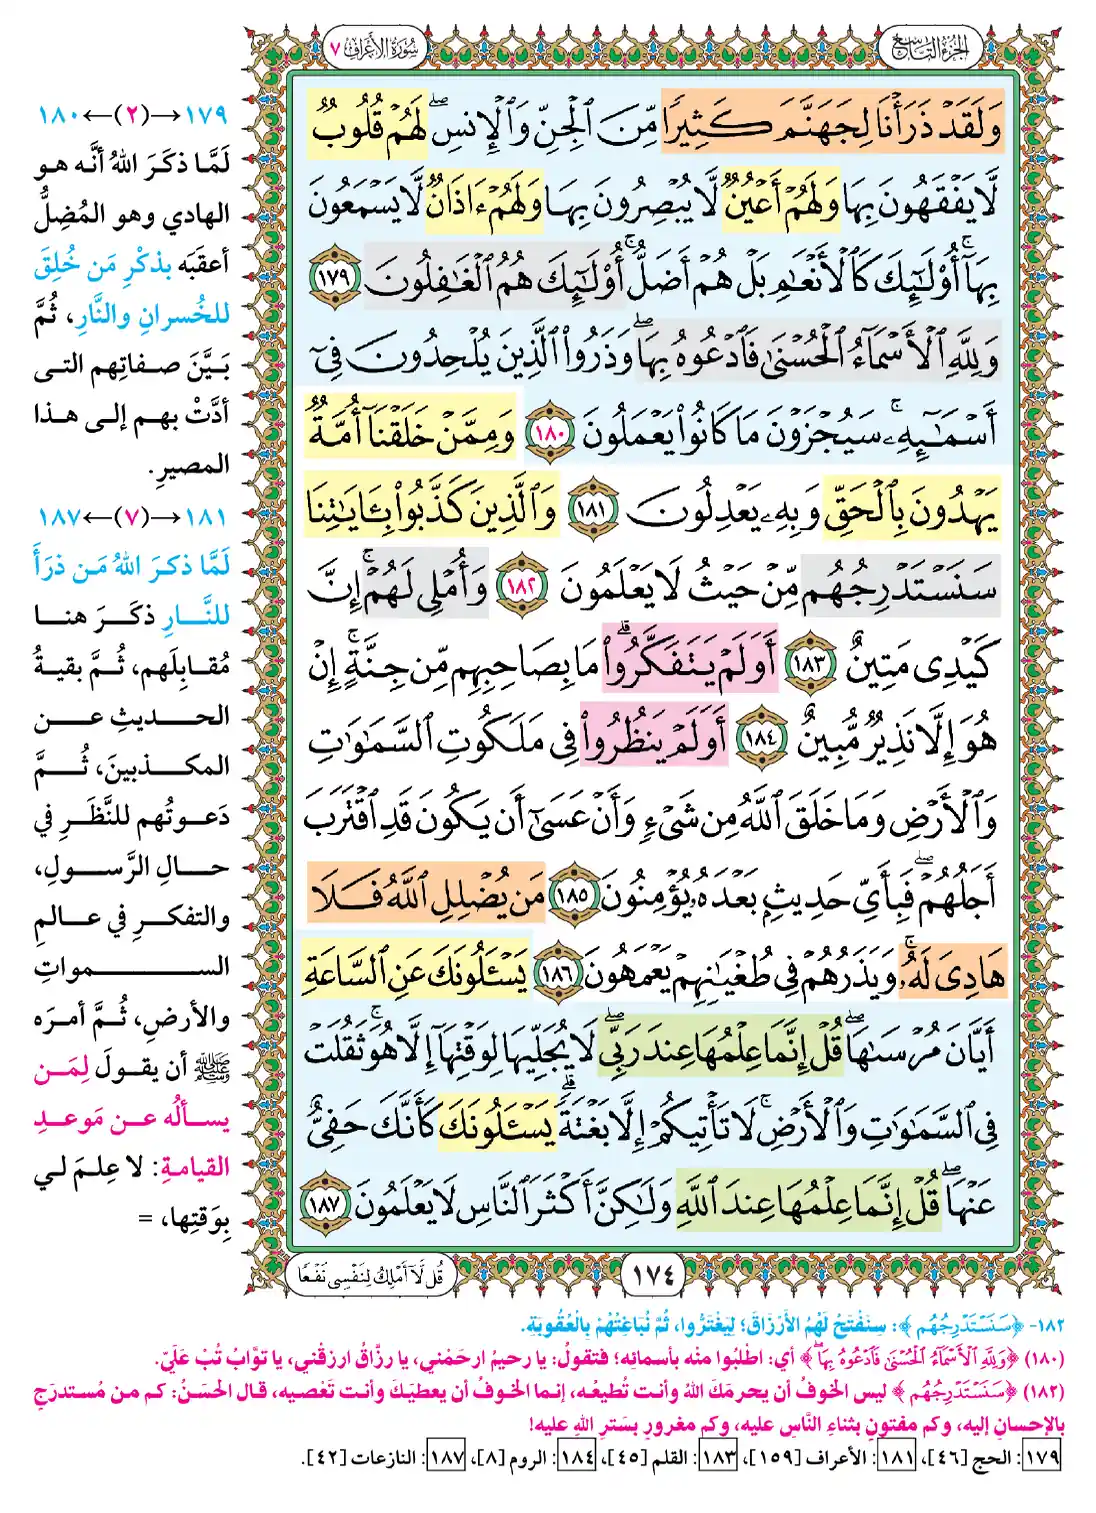 الجزء التاسع
سورة الأعراف ٧
وَلَقَدْ ذَرَأْنَا لِجَهَنَّمَ كَثِيرًا مِّنَ ٱلْجِنِّ وَٱلْإِنسِ ۖ لَهُمْ قُلُوبٌ
لَّا يَفْقَهُونَ بِهَا وَلَهُمْ أَعْيُنٌ لَّا يُبْصِرُونَ بِهَا وَلَهُمْ ءَاذَانٌ لَّا يَسْمَعُونَ
بِهَآ ۚ أُو۟لَـٰٓئِكَ كَٱلْأَنْعَـٰمِ بَلْ هُمْ أَضَلُّ ۚ أُو۟لَـٰٓئِكَ هُمُ ٱلْغَـٰفِلُونَ ١٧٩
وَلِلَّهِ ٱلْأَسْمَآءُ ٱلْحُسْنَىٰ فَٱدْعُوهُ بِهَا ۖ وَذَرُوا۟ ٱلَّذِينَ يُلْحِدُونَ فِىٓ
أَسْمَـٰٓئِهِۦ ۚ سَيُجْزَوْنَ مَا كَانُوا۟ يَعْمَلُونَ ١٨٠ وَمِمَّنْ خَلَقْنَآ أُمَّةٌ
يَهْدُونَ بِٱلْحَقِّ وَبِهِۦ يَعْدِلُونَ ١٨١ وَٱلَّذِينَ كَذَّبُوا۟ بِـَٔايَـٰتِنَا
سَنَسْتَدْرِجُهُم مِّنْ حَيْثُ لَا يَعْلَمُونَ ١٨٢ وَأُمْلِى لَهُمْ ۚ إِنَّ
كَيْدِى مَتِينٌ ١٨٣ أَوَلَمْ يَتَفَكَّرُوا۟ ۗ مَا بِصَاحِبِهِم مِّن جِنَّةٍ ۚ إِنْ
هُوَ إِلَّا نَذِيرٌ مُّبِينٌ ١٨٤ أَوَلَمْ يَنظُرُوا۟ فِى مَلَكُوتِ ٱلسَّمَـٰوَٰتِ
وَٱلْأَرْضِ وَمَا خَلَقَ ٱللَّهُ مِن شَىْءٍ وَأَنْ عَسَىٰٓ أَن يَكُونَ قَدِ ٱقْتَرَبَ
أَجَلُهُمْ ۖ فَبِأَىِّ حَدِيثٍۭ بَعْدَهُۥ يُؤْمِنُونَ ١٨٥ مَن يُضْلِلِ ٱللَّهُ فَلَا
هَادِىَ لَهُۥ ۚ وَيَذَرُهُمْ فِى طُغْيَـٰنِهِمْ يَعْمَهُونَ ١٨٦ يَسْـَٔلُونَكَ عَنِ ٱلسَّاعَةِ
أَيَّانَ مُرْسَىٰهَا ۖ قُلْ إِنَّمَا عِلْمُهَا عِندَ رَبِّى ۖ لَا يُجَلِّيهَا لِوَقْتِهَآ إِلَّا هُوَ ۚ ثَقُلَتْ
فِى ٱلسَّمَـٰوَٰتِ وَٱلْأَرْضِ ۚ لَا تَأْتِيكُمْ إِلَّا بَغْتَةً ۗ يَسْـَٔلُونَكَ كَأَنَّكَ حَفِىٌّ
عَنْهَا ۖ قُلْ إِنَّمَا عِلْمُهَا عِندَ ٱللَّهِ وَلَـٰكِنَّ أَكْثَرَ ٱلنَّاسِ لَا يَعْلَمُونَ ١٨٧
١٧٤
قُل لَّآ أَمْلِكُ لِنَفْسِى نَفْعًا
١٧٩→(٢)←١٨٠
لَمَّا ذكَرَ اللهُ أنَّه هو
الهادي وهو المُضِلُّ
أعقبَه بذكْرِ مَن خُلِقَ
للخُسرانِ والنَّارِ، ثُمَّ
بَيَّنَ صفاتِهم التى
أدَّتْ بهم إلى هذا
المصيرِ.
١٨١→(٧)←١٨٧
لَمَّا ذكرَ اللهُ مَن ذرَأَ
للنَّارِ ذكَرَ هنا
مُقابلَهم، ثُمَّ بقيةُ
الحديثِ عن
المكذبينَ، ثُمَّ
دَعوتُهم للنَّظَرِ في
حالِ الرَّسولِ،
والتفكرِ في عالمِ
السمواتِ
والأرضِ، ثُمَّ أمرَه
ﷺ أن يقولَ لِمَن
يسألُه عن مَوعدِ
القيامةِ: لا عِلمَ لي
بِوَقتِها، =
١٨٢- ﴿سَنَسْتَدْرِجُهُم﴾: سَنَفْتَحُ لَهُمُ الأَرْزَاقَ؛ لِيَغْتَرُّوا، ثُمَّ نُبَاغِتُهُمْ بِالْعُقُوبَةِ.
(١٨٠) ﴿وَلِلَّهِ ٱلْأَسْمَآءُ ٱلْحُسْنَىٰ فَٱدْعُوهُ بِهَا ۖ﴾ أي: اطْلُبُوا منْه بأسمائِه؛ فتقولُ: يا رحيمُ ارحَمْني، يا رزَّاقُ ارزقْني، يا توَّابُ تُبْ عَلَيّ.
(١٨٢) ﴿سَنَسْتَدْرِجُهُم﴾ ليس الخوفُ أن يحرمَكَ اللهُ وأنت تُطيعُه، إنما الخوفُ أن يعطيَكَ وأنت تَعْصيه، قال الحسَنُ: كم من مُستدرَجٍ
بالإحسانِ إليه، وكم مفتونٍ بثناءِ النَّاسِ عليه، وكم مغرورٍ بسَترِ اللهِ عليه!
١٧٩: الحج [٤٦]، ١٨١: الأعراف [١٥٩]، ١٨٣: القلم [٤٥]، ١٨٤: الروم [٨]، ١٨٧: النازعات [٤٢].